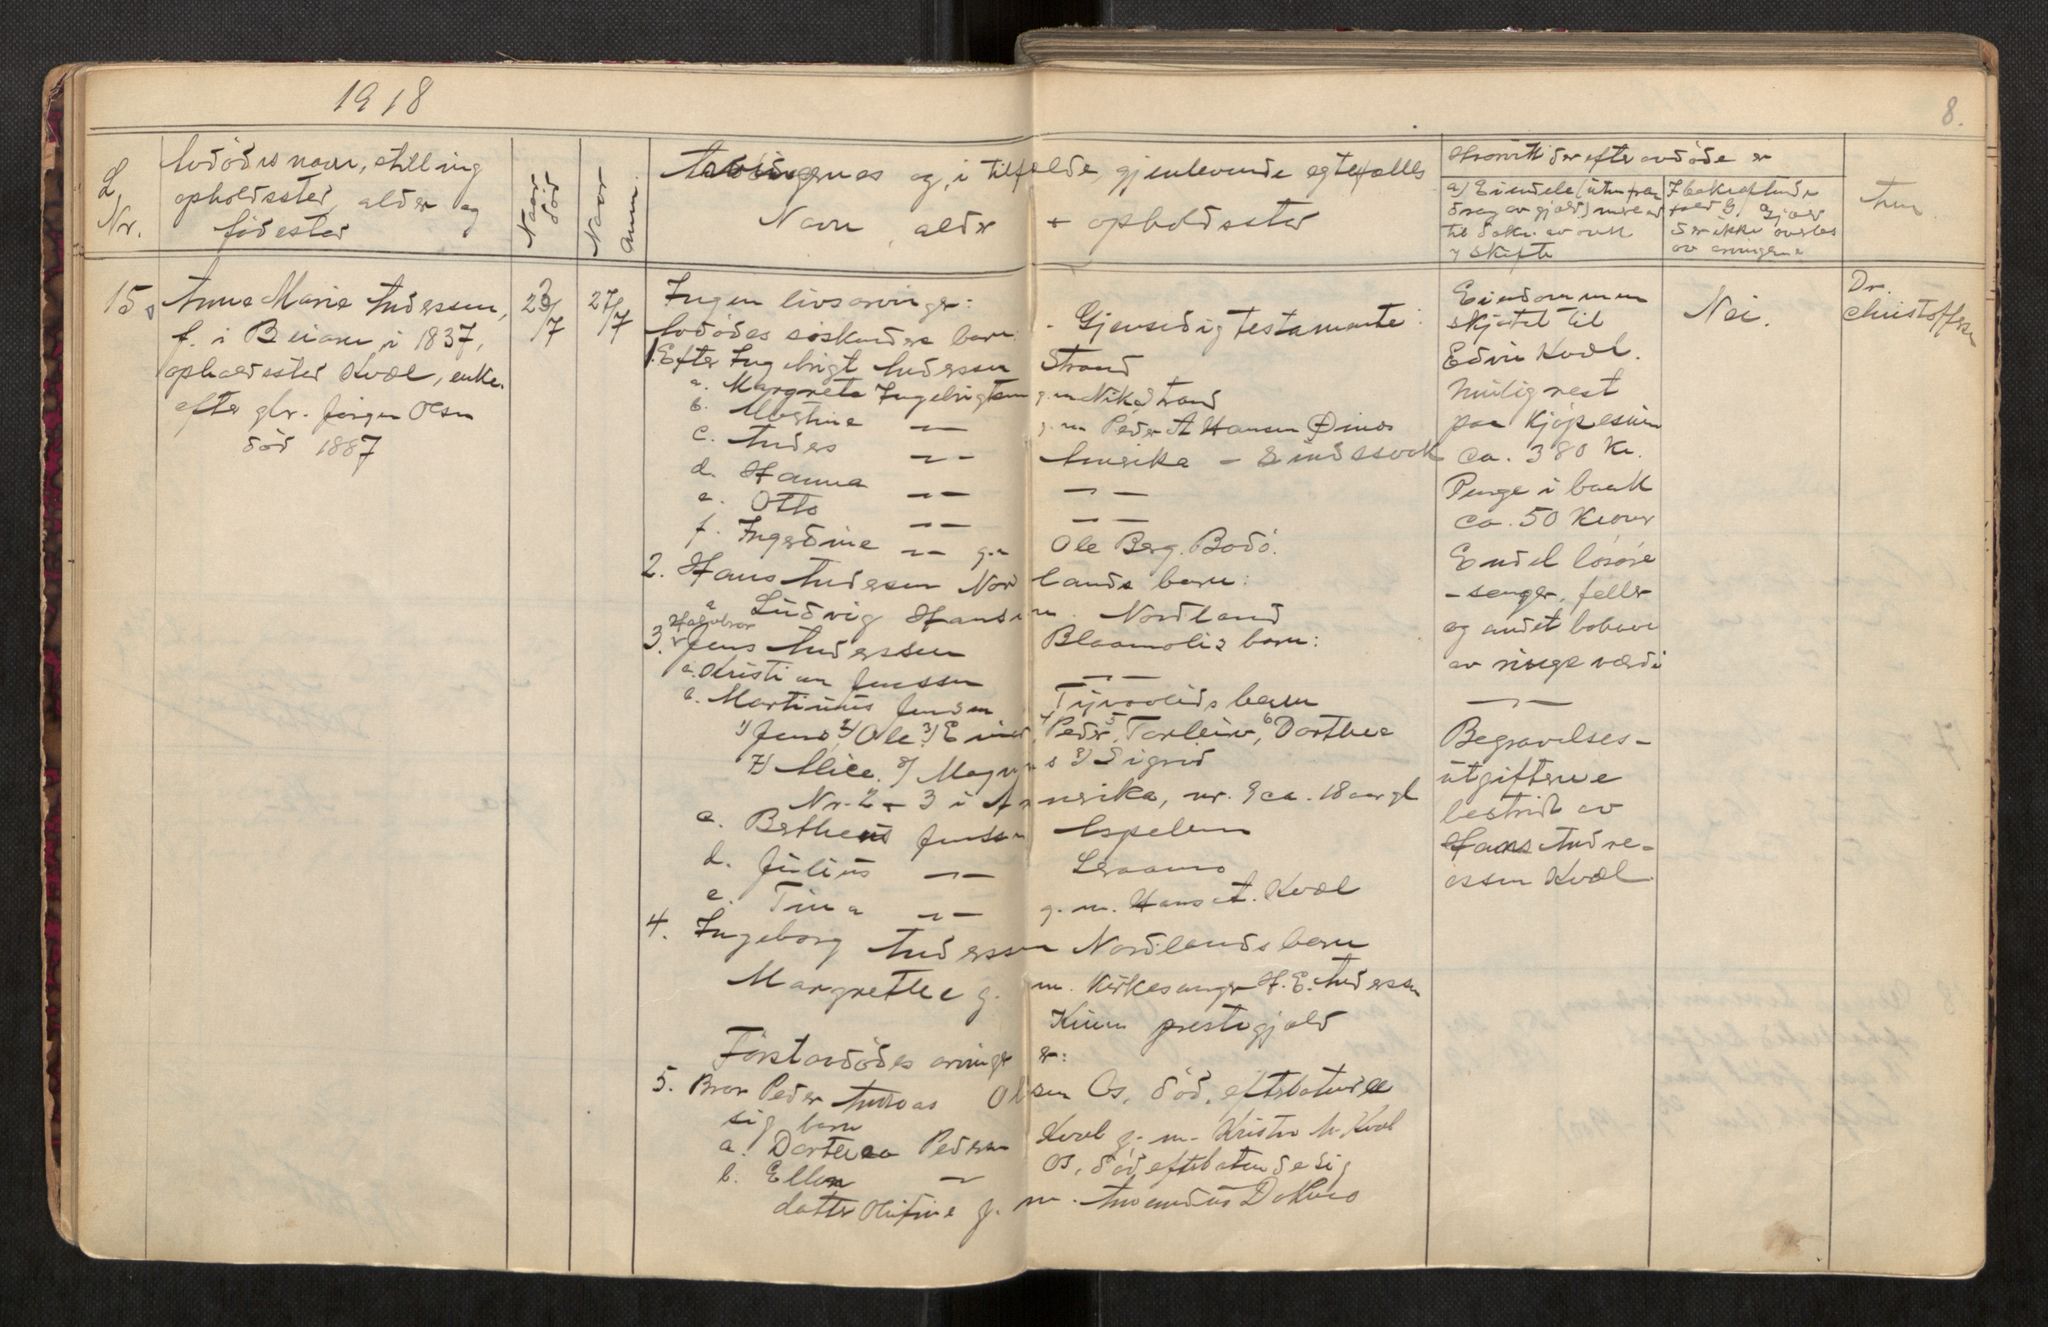 1918
8.
L. Nr.
Avdødes navn, stilling
opholdssted, alder og
fødested
Naar død
Naar anm.
Arvingernes og, i tilfelde, gjenlevende egtefælles
Navn, alder + opholdssted
Hvorvidt der efter avdøde er
a) Eiendele (uten fra
drag av gjæld) mere end
til dækn. av omk
v skifte
Gjæld
der ikke overtas
av arvingene
Anm.
15
Anna Marie Anderssen,
f. i Beiarn i 1837,
opholdssted Kvæl, enke
efter gbr. Jørgen Olsen
død 1887
23/7
27/7
Ingen livsarvinger: - Gjensidig testamente:
Avdødes søskendes barn:
1. Efter Ingebrigt Anderssen Strand
a. Margrete Ingebrigtsen g.m Nik. Strand
b. Mostine -"- g.m Peder A Hansen Øines
c. Anders -"- Amerika - Sindssvak
d. Hanna -"- -"-
e. Otto -"- -"-
f. Ingerdine -"- g.m Ole Berg. Bodø.
2. Hans Andersen Nordlands barn:
a Ludvig Hansen. Nordland
Halvbror
3. Jens Anderssen Blaamolis barn:
a. Kristian Jenssen -"-
b. Martinus Jensen Tjvaalids barn
1) Jens, 2) Ole 3) Einar, 4 Peder, 5 Torleiv, 6 Dorthea
7) Alice. 8) Magnus 9) Sigrid
Nr. 2 + 3 i Amerika, nr. 9 ca. 18 aar gl
c. Betheus Jenssen Aspelien
d. Julius -"- Leraamo
e. Tina -"- g. m. Hans A. Kvæl
4. Ingeborg Anderssen Nordlands barn
Margrethe g. m. Kirkesanger H. E. Anderssen
Kinn prestegjeld
Førstavdødes arvinger er:
5. Bror Peder Andreas Olsen Os, død, efterlatende
sig barn
a. Dorthea Pedersen Kvæl g. m. Krist. A. Kvæl
b. Ellen -"- Os, død, efterlatende sig
datter Olufine g. m. Amandus
Eiendommen
skjøtet til
Edvin Kvæl.
Mulig rest
paa Kjøpesum
ca. 380 Kr.
Penge i bank
ca. 50 Kroner
Endel løsøre
- senger, feller
og andet bohave
av ringe værdi
-"-
Begravelses-
utgifterne
bestridt av
Hans Andre-
assen Kvæl.
Nei.
Dr.
Christoffersen